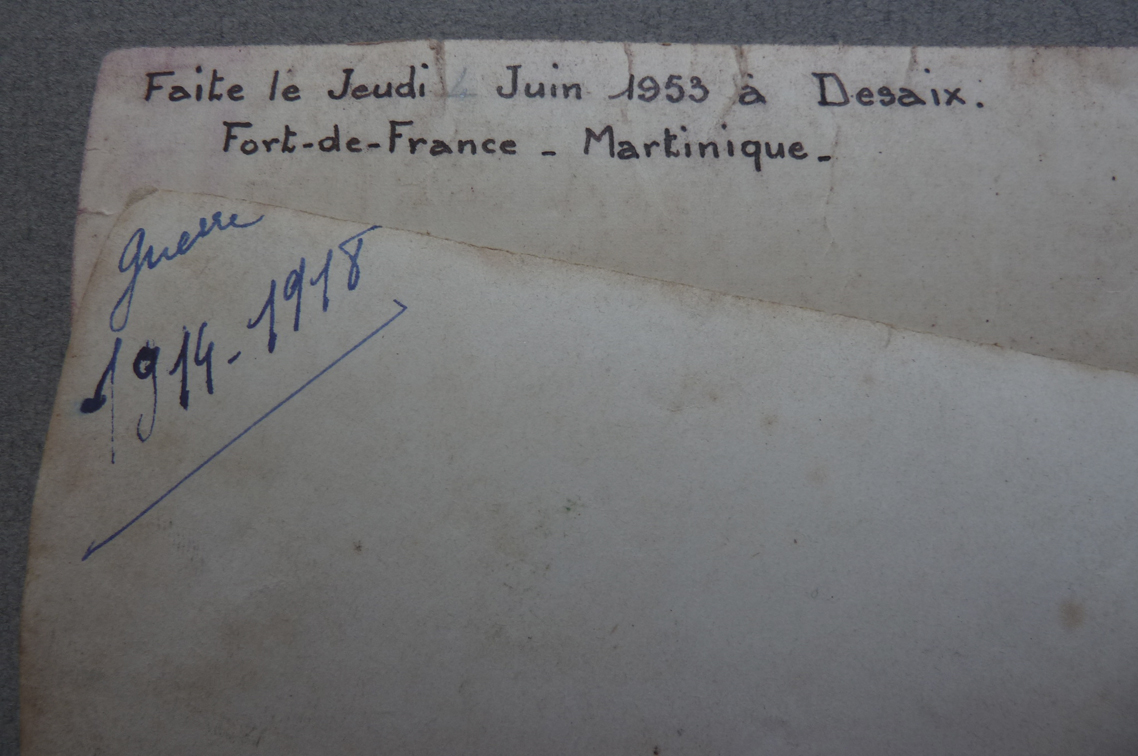 Faite le Jeudi 4 Juin 1953 à Desaix.
Fort-de-France - Martinique-
Guerre
1914-1918